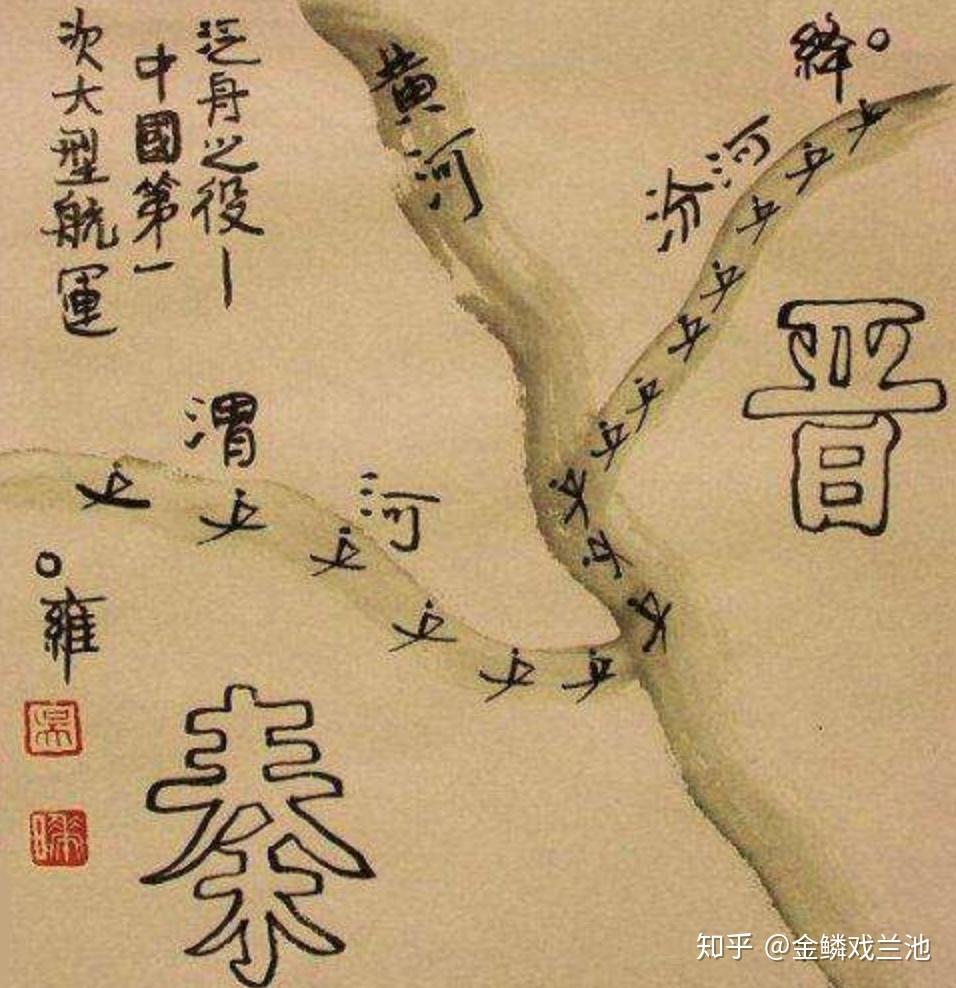 泛舟之役—
中國第一
次大型航運
黃河
汾河
絳
晉
渭河
雍
秦
知乎 @金鳞戏兰池